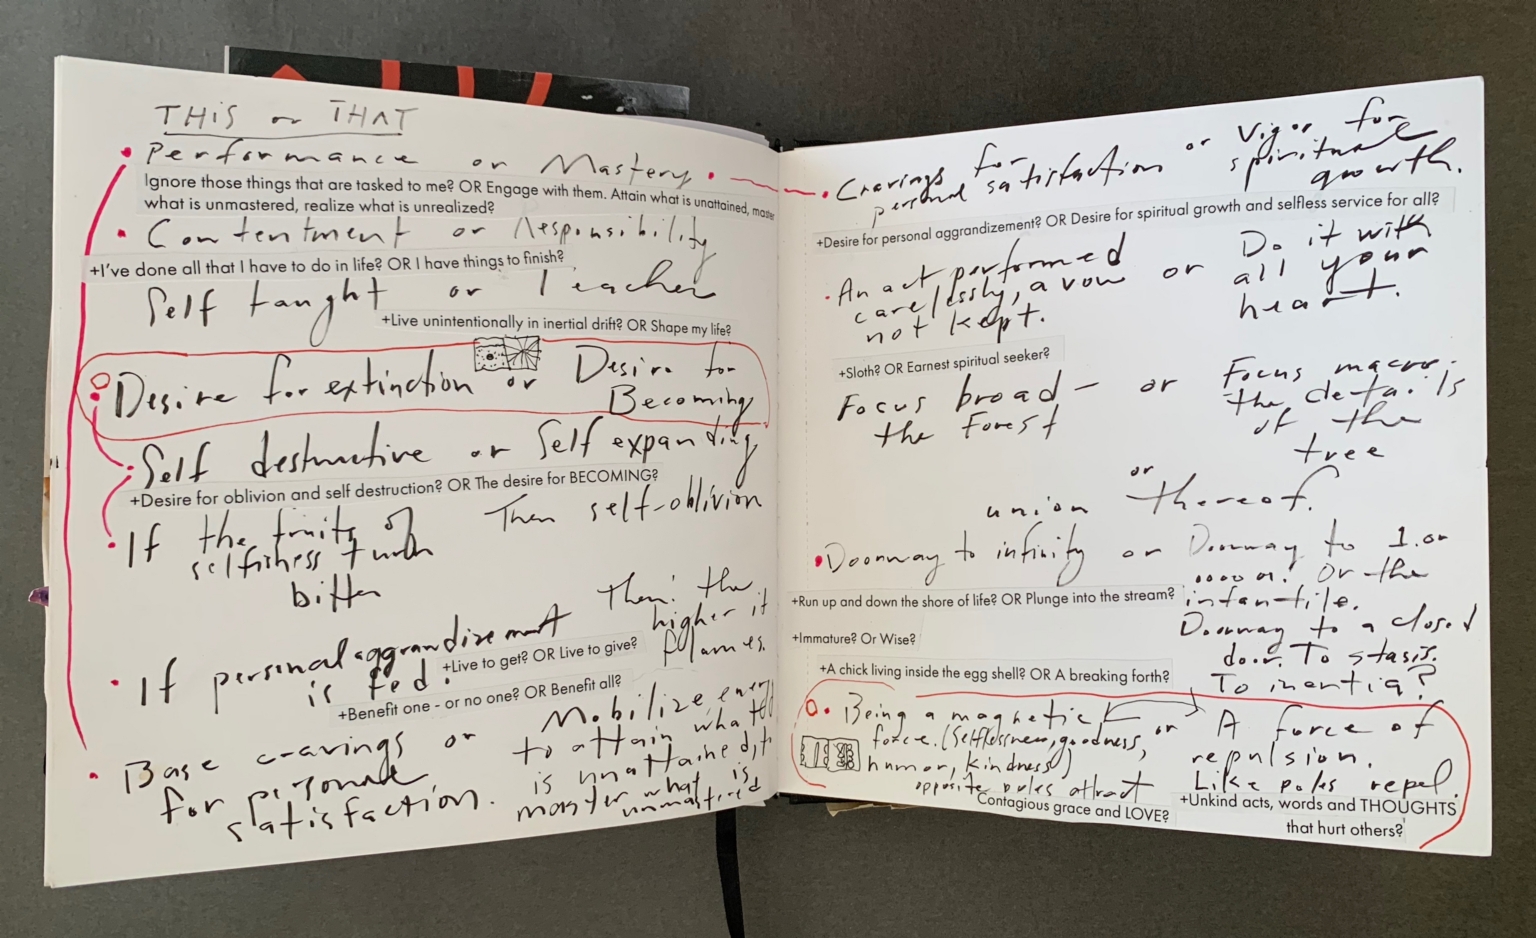 THIS or THAT
Performance or Mastery
Ignore those things that are tasked to me? OR Engage with them. Attain what is unattained, master
what is unmastered, realize what is unrealized?
Contentment or Responsibility
+I've done all that I have to do in life? OR I have things to finish?
Self taught or Teacher
+Live unintentionally in inertial drift? OR Shape my life?
Desire for extinction or Desire for
Becoming
Self destructive or Self expanding
+Desire for oblivion and self destruction? OR The desire for BECOMING?
If the fruits of Then self-oblivion
selfishness turn
bitter
If personal aggrandizement Then: the
is fed. higher it
flames.
+Live to get? OR Live to give?
+Benefit one - or no one? OR Benefit all?
Base cravings or
for personal
satisfaction.
Mobilize
to attain what
is unattained
master what is
unmastered
Cravings for or Vigor for
personal satisfaction spiritual
growth.
+Desire for personal aggrandizement? OR Desire for spiritual growth and selfless service for all?
An act performed or Do it with
carelessly, a vow all your
not kept. heart.
+Sloth? OR Earnest spiritual seeker?
Focus broad - or Focus macro.
the forest the details
of the
tree
or
union thereof.
Doorway to infinity or Doorway to 1.
Or the
infantile.
+Run up and down the shore of life? OR Plunge into the stream?
Doorway to a closed
door. To stasis.
To inertia?
+Immature? Or Wise?
+A chick living inside the egg shell? OR A breaking forth?
Being a magnetic or A force of
force. (Selflessness, goodness, repulsion.
humor, kindness) Like poles repel.
opposite poles attract
Contagious grace and LOVE?
+Unkind acts, words and THOUGHTS
that hurt others?